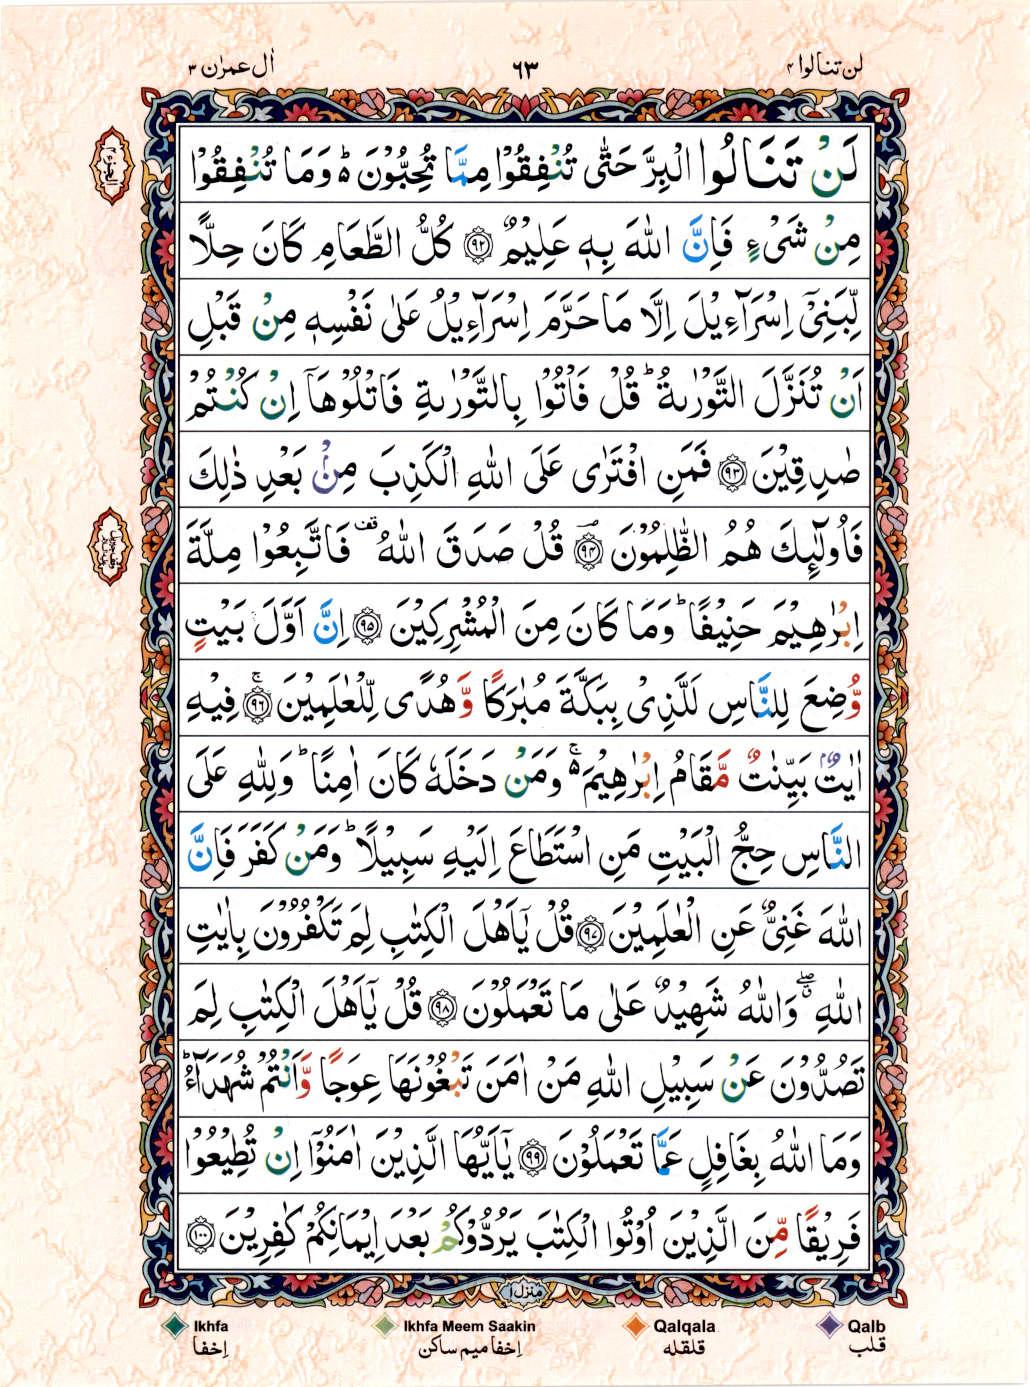 لن تنالوا ۴
٦٣
اٰل عمرٰن ۳
لَنْ تَنَالُوا الْبِرَّ حَتّٰى تُنْفِقُوْا مِمَّا تُحِبُّوْنَ ؕ۬ وَمَا تُنْفِقُوْا
مِنْ شَیْءٍ فَاِنَّ اللّٰهَ بِهٖ عَلِیْمٌ ﴿۹۲﴾ كُلُّ الطَّعَامِ كَانَ حِلًّا
لِّبَنِیْۤ اِسْرَآءِیْلَ اِلَّا مَا حَرَّمَ اِسْرَآءِیْلُ عَلٰى نَفْسِهٖ مِنْ قَبْلِ
اَنْ تُنَزَّلَ التَّوْرٰىةُ ؕ قُلْ فَاْتُوْا بِالتَّوْرٰىةِ فَاتْلُوْهَاۤ اِنْ كُنْتُمْ
صٰدِقِیْنَ ﴿۹۳﴾ فَمَنِ افْتَرٰى عَلَى اللّٰهِ الْكَذِبَ مِنْۢ بَعْدِ ذٰلِكَ
فَاُولٰٓىِٕكَ هُمُ الظّٰلِمُوْنَ ﴿۹۴﴾ؔ قُلْ صَدَقَ اللّٰهُ ۫ فَاتَّبِعُوْا مِلَّةَ
اِبْرٰهِیْمَ حَنِیْفًا ؕ وَمَا كَانَ مِنَ الْمُشْرِكِیْنَ ﴿۹۵﴾ اِنَّ اَوَّلَ بَیْتٍ
وُّضِعَ لِلنَّاسِ لَلَّذِیْ بِبَكَّةَ مُبٰرَكًا وَّهُدًى لِّلْعٰلَمِیْنَ ﴿۹۶﴾ۚ فِیْهِ
اٰیٰتٌۢ بَیِّنٰتٌ مَّقَامُ اِبْرٰهِیْمَ ۚ۬ وَمَنْ دَخَلَهٗ كَانَ اٰمِنًا ؕ وَلِلّٰهِ عَلَى
النَّاسِ حِجُّ الْبَیْتِ مَنِ اسْتَطَاعَ اِلَیْهِ سَبِیْلًا ؕ وَمَنْ كَفَرَ فَاِنَّ
اللّٰهَ غَنِیٌّ عَنِ الْعٰلَمِیْنَ ﴿۹۷﴾ قُلْ یٰۤاَهْلَ الْكِتٰبِ لِمَ تَكْفُرُوْنَ بِاٰیٰتِ
اللّٰهِ ۖۗ وَاللّٰهُ شَهِیْدٌ عَلٰى مَا تَعْمَلُوْنَ ﴿۹۸﴾ قُلْ یٰۤاَهْلَ الْكِتٰبِ لِمَ
تَصُدُّوْنَ عَنْ سَبِیْلِ اللّٰهِ مَنْ اٰمَنَ تَبْغُوْنَهَا عِوَجًا وَّاَنْتُمْ شُهَدَآءُ ؕ
وَمَا اللّٰهُ بِغَافِلٍ عَمَّا تَعْمَلُوْنَ ﴿۹۹﴾ یٰۤاَیُّهَا الَّذِیْنَ اٰمَنُوْۤا اِنْ تُطِیْعُوْا
فَرِیْقًا مِّنَ الَّذِیْنَ اُوْتُوا الْكِتٰبَ یَرُدُّوْكُمْ بَعْدَ اِیْمَانِكُمْ كٰفِرِیْنَ ﴿۱۰۰﴾
منزل ۱
Ikhfa
اِخفا
Ikhfa Meem Saakin
اِخفا میم ساکن
Qalqala
قلقله
Qalb
قلب